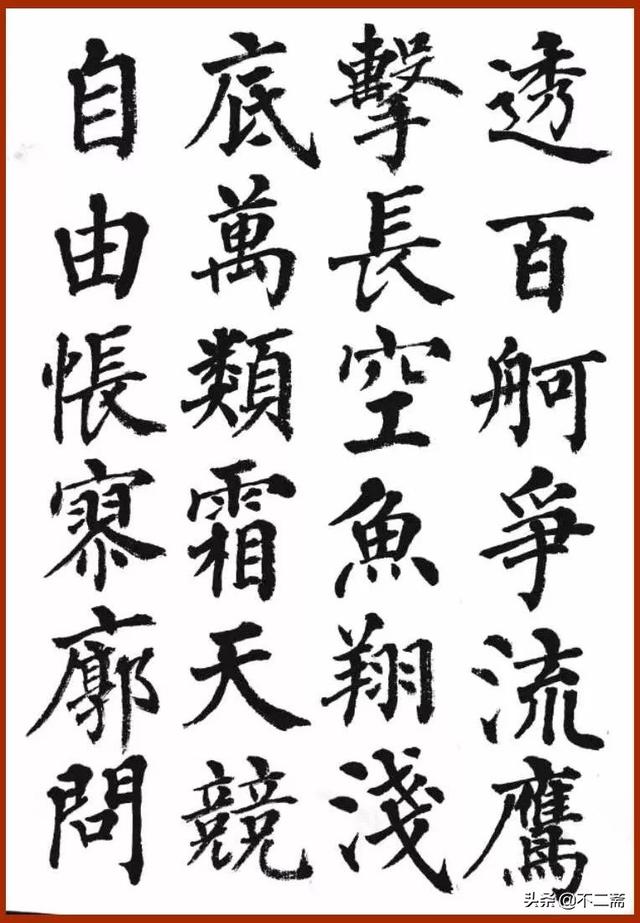 透百舸爭流鷹
擊長空魚翔淺
底萬類霜天競
自由帳寥廓問
头条@不二斋